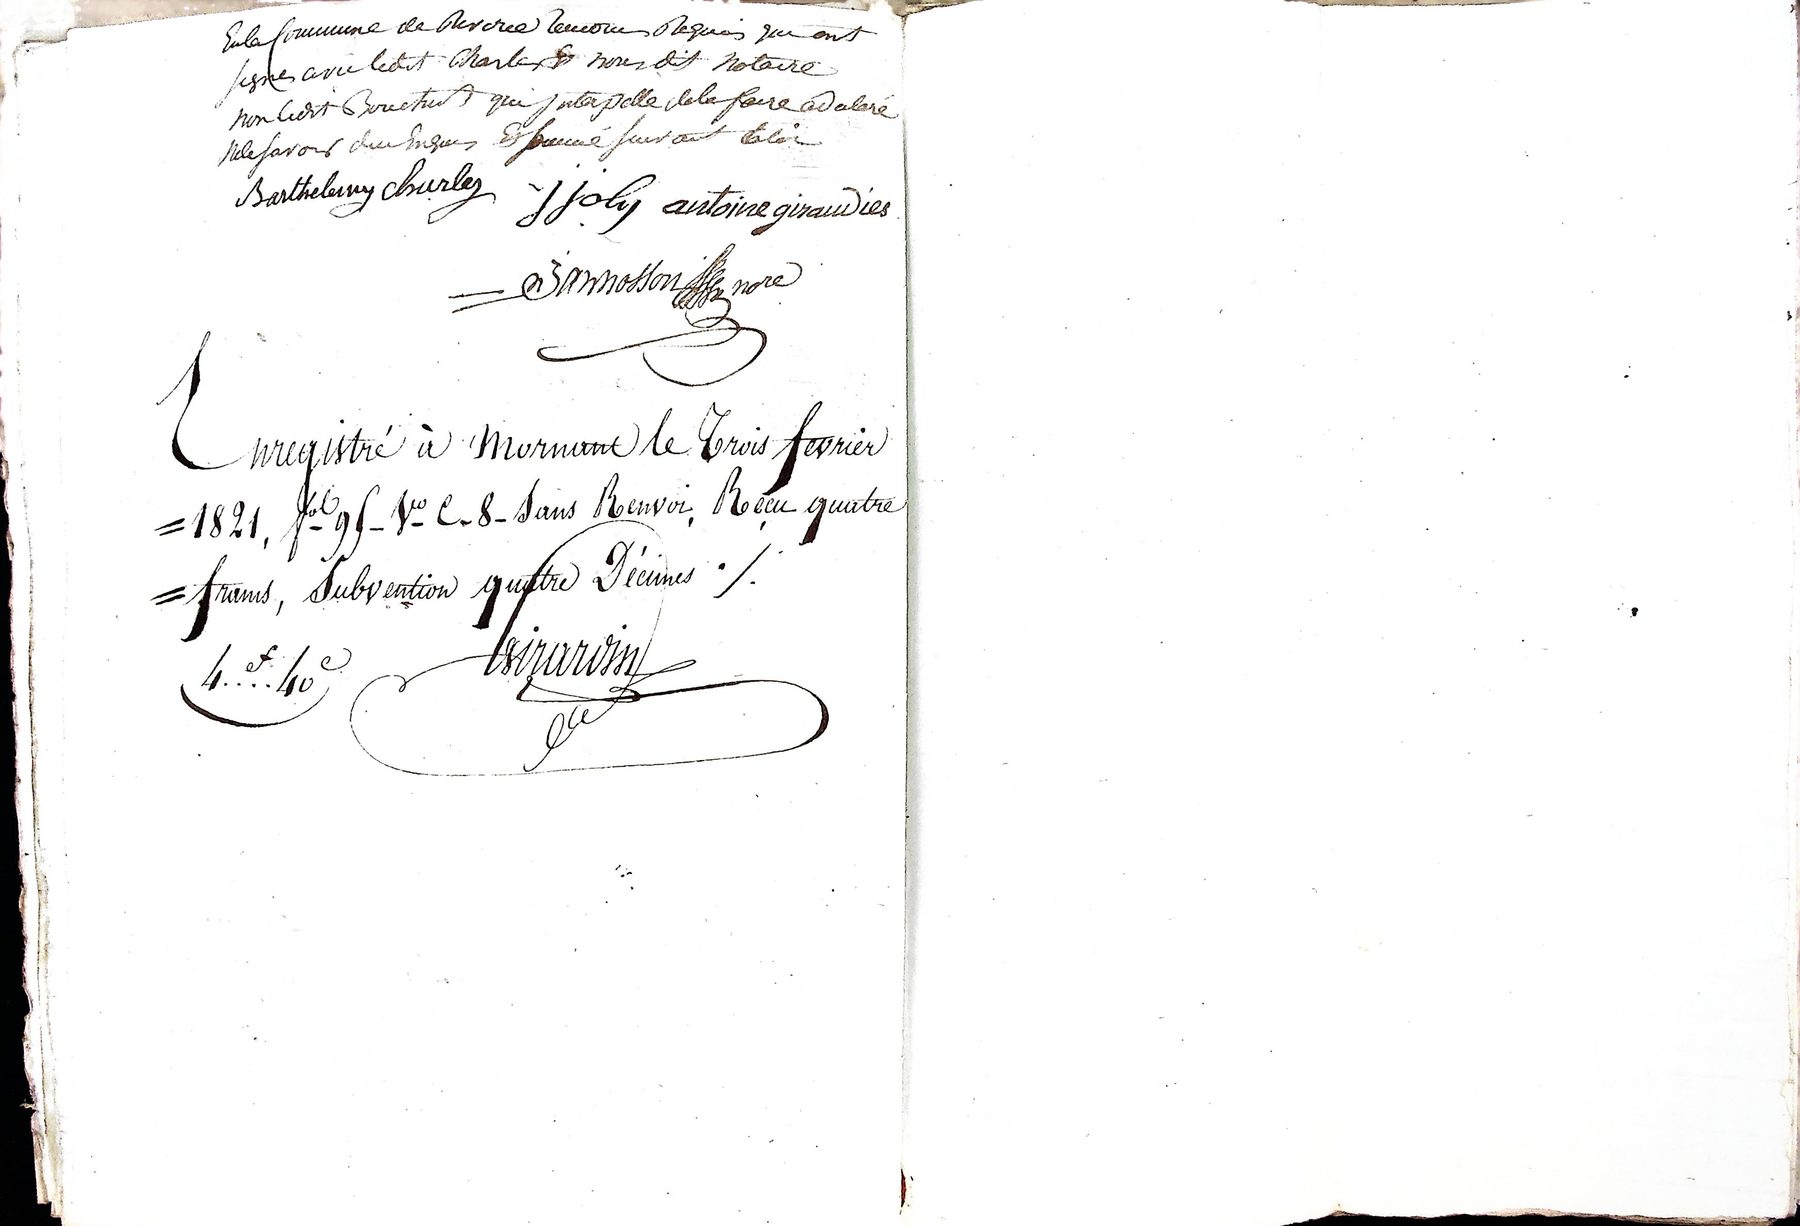 En la Commune de Riverie temoins Requis qui ont
signé avec ledit Charles & nous dit notaire
non ledit qui Interpellé de le faire a declaré
ne le savoir de ce Enquis Et sommé suivant la loi
Barthelemy Charles jjoly antoine giraudies
nore
Enregistré à Mornant le Trois fevrier
= 1821, fol 95 Vo C. 8 - Sans Renvoi, Reçu quatre
= francs, Subvention quatre Décimes ./.
4.f..40c Girardin